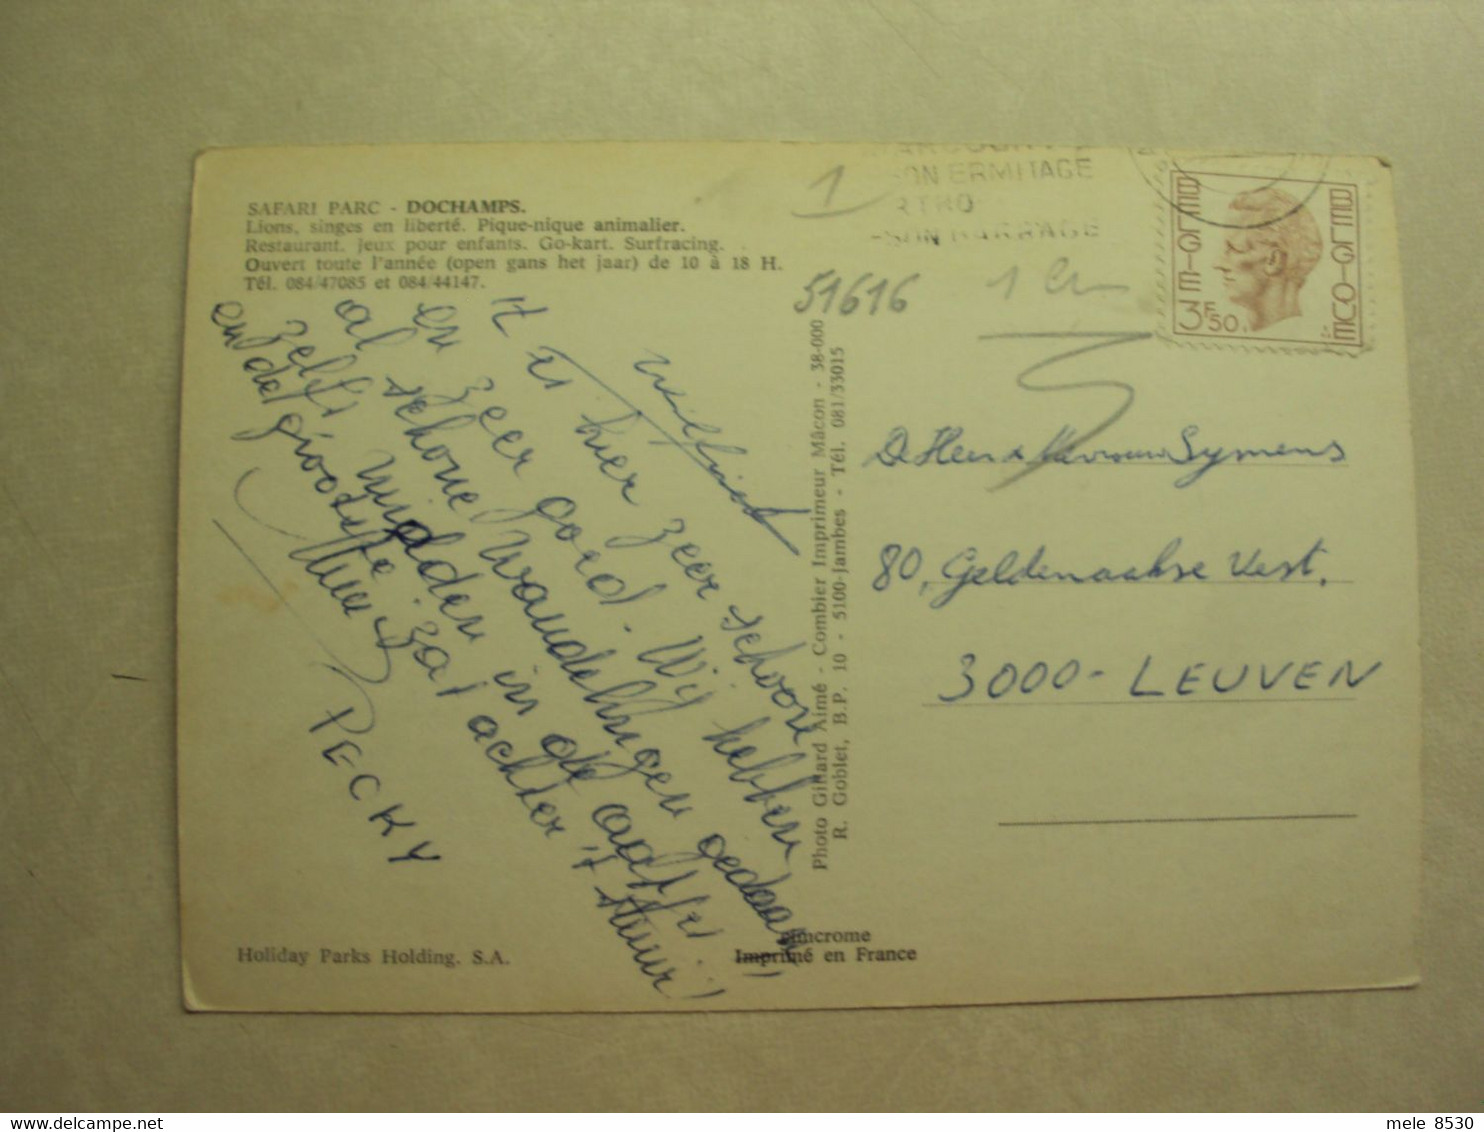 SAFARI PARC - DOCHAMPS.
Lions, singes en liberté. Pique-nique animalier.
Restaurant. Jeux pour enfants. Go-kart. Surfracing.
Ouvert toute l'année (open gans het jaar) de 10 à 18 H.
Tél. 084/47085 et 084/44147.
't is hier zeer schoon
en zeer goed. Wij hebben
al schone wandelingen gedaan
zelfs midden in de
en de grootste zat achter 't stuur!
PECKY
Holiday Parks Holding. S.A.
Photo Gillard Aimé - Combier Imprimeur Mâcon - 38-000
R. Goblet, B.P. 10 - 5100-Jambes - Tél. 081/33015
Imprimé en France
1
ON ERMITAGE
SON BARRAGE
51616
BELGIE
BELGIQUE
3F50
De Heer & Mevrouw Symens
80, Geldenaakse Vest,
3000- LEUVEN
mele 8530